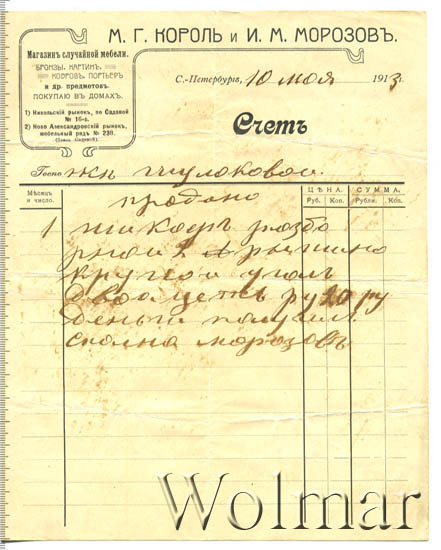 М. Г. КОРОЛЬ и И. М. МОРОЗОВЪ.
Магазинъ случайной мебели.
БРОНЗЫ, КАРТИНЪ,
КОВРОВЪ, ПОРТЬЕРЪ
и др. предметовъ.
ПОКУПАЮ ВЪ ДОМАХЪ.
1) Никольскій рынокъ, по Садовой
№ 16-й.
2) Ново Александровскій рынокъ,
мебельный рядъ № 238.
С.-Петербургъ, 10 мая 1913
Счетъ
Госпо жи
Мѣсяцъ и число.
ЦѢНА.
Руб. Коп.
СУММА.
Рубли. Коп.
продано
1 шкафъ разбо
рной 2
круглой уголъ
двацеть ру 20 ру
деньги получил
сполна морозовъ
Wolmar